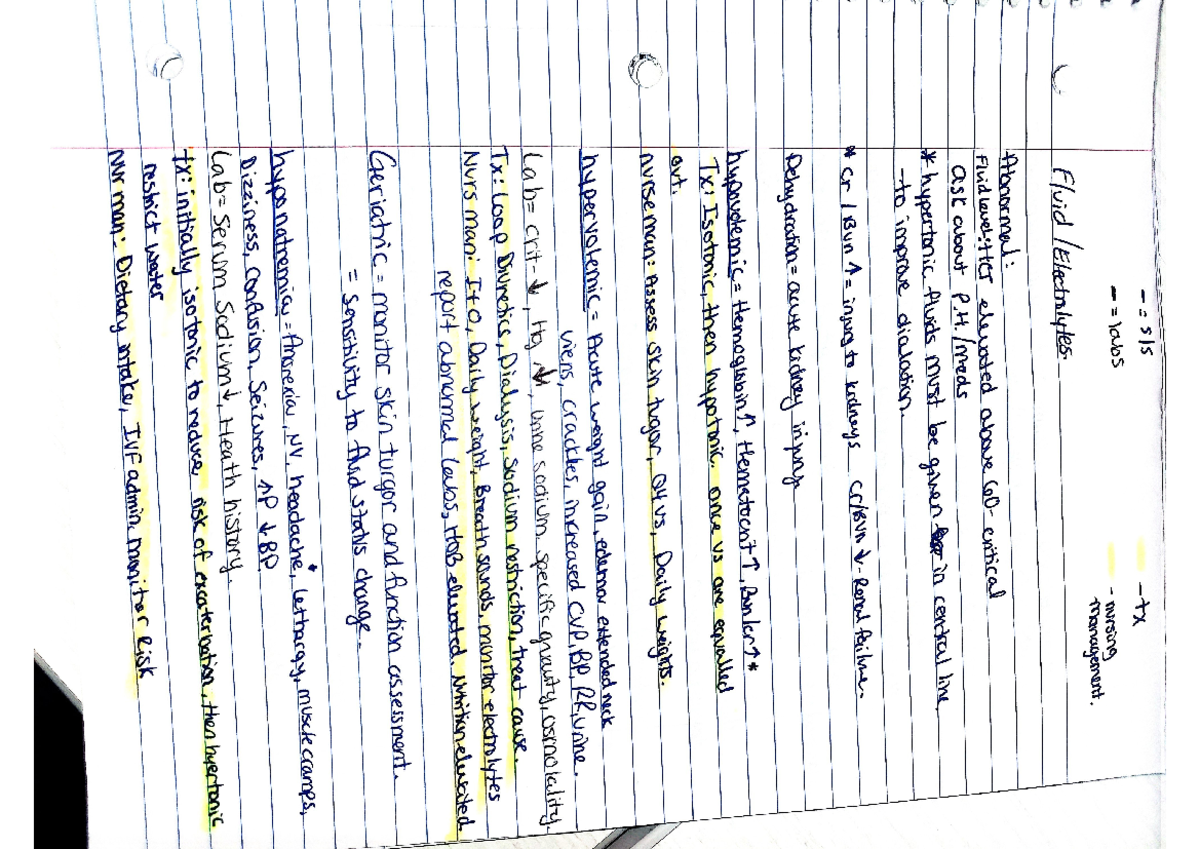 - = s/s
- = labs
- tx
- nursing management.
Fluid/Electrolytes
Abnormal:
Fluid level: Her elevated above 60- critical
ask about pH/meds
* hypertonic fluids must be given in central line
- to improve dialation.
* cr / Bun ↑ = injury to kidneys cr/BUN ↓. Renal failure.
Dehydration = acute kidney injury
hypovolemic = Hemoglobin ↑, Hematocrit ↑, Bun/cr ↑ *
Tx: Isotonic, then hypotonic. once vs are equalled
out.
nurse man: Assess skin turgor, Q4 vs, Daily weights.
hypervolemic = Acute weight gain, edema, extended neck
viens, crackles, increased CVP, BP, RR, urine.
Lab = crit - ↓, Hg ↓, urine sodium, specific gravity, osmolality.
Tx: Loop Diuretics, Dialysis, sodium restriction, treat cause.
Nurs man: I+O, Daily weight, Breath sounds, monitor electrolytes
report abnormal labs, HOB elevated. Nutrition elevated
Geriatric = monitor skin turgor and function assessment.
= sensitivity to fluid status change.
hyponatremia = Anorexia, NV, headache, Lethargy, muscle cramps,
Dizziness, confusion, seizures, ↑P ↓BP
Lab = Serum Sodium ↓, Heath history.
Tx: initially isotonic to reduce risk of excaterbation, then hypertonic
restrict water
Nur man: Dietary intake, IVF admin, monitor Risk